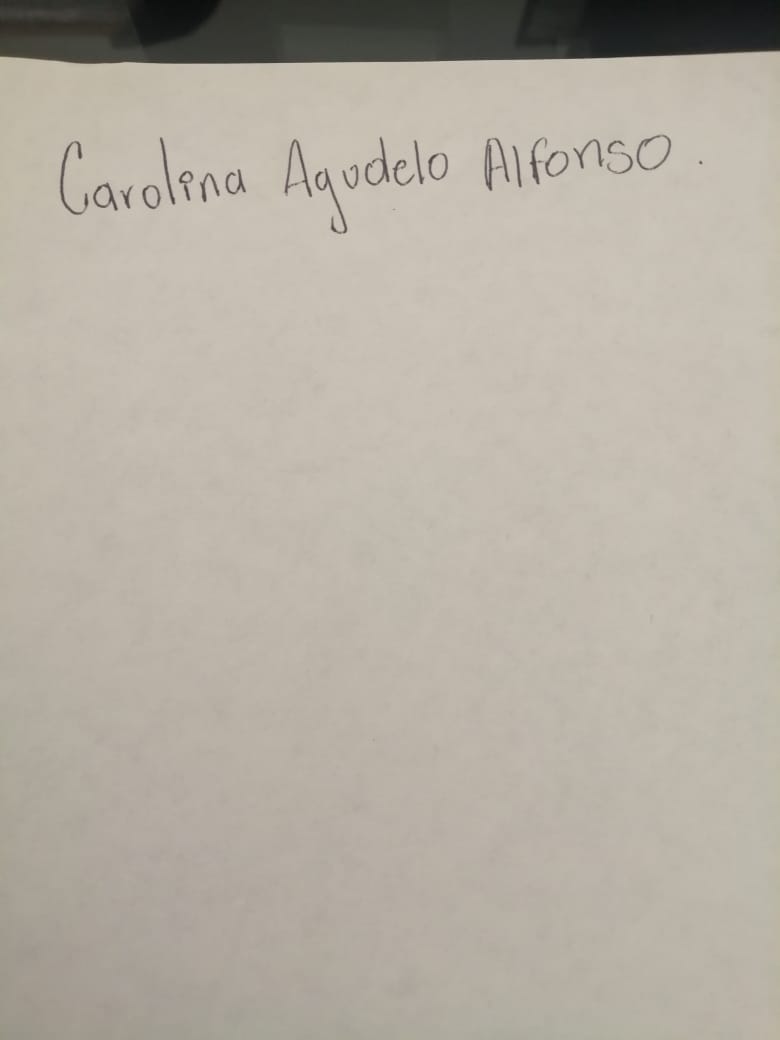 Carolina Agudelo Alfonso.